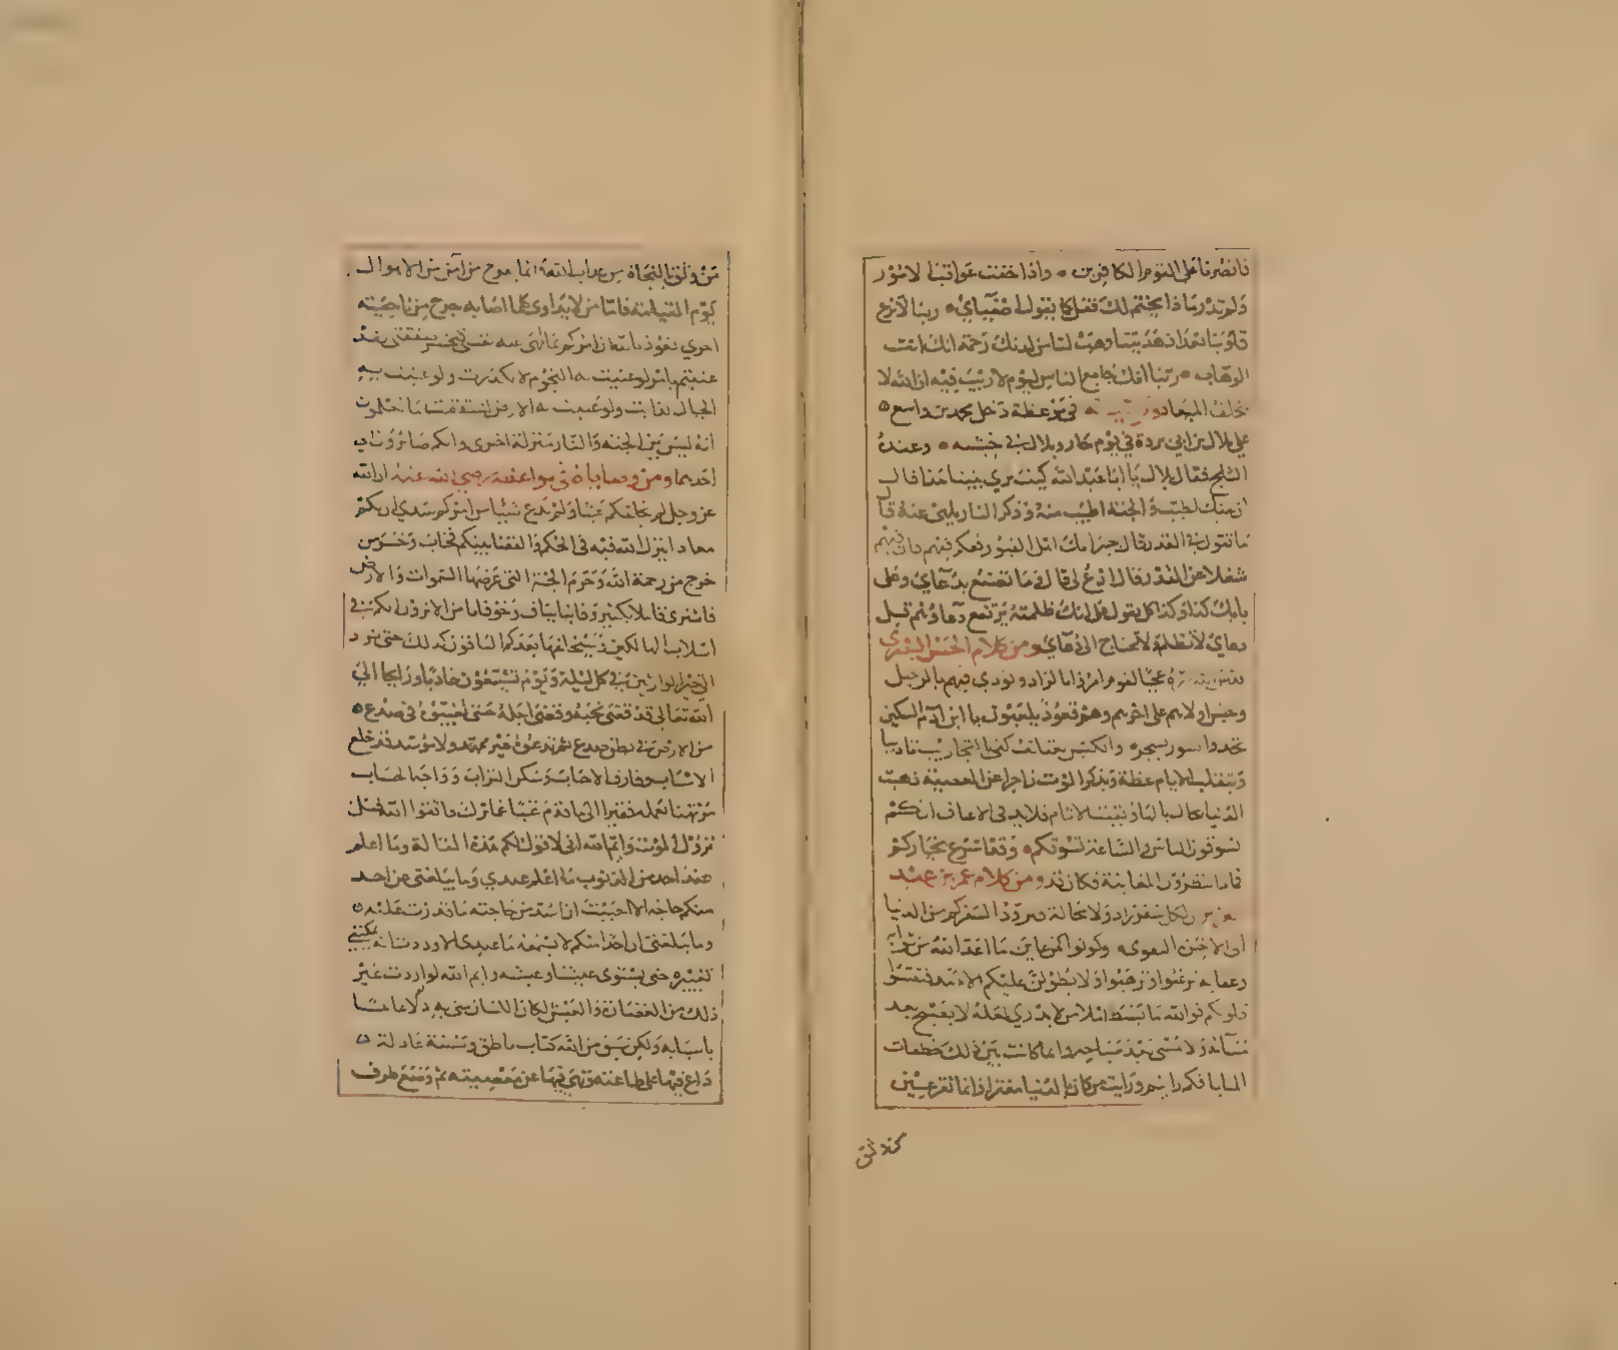 فانصرنا على القوم الكافرين ۞ واذا خفت عواقب الامور
ولم تدر بماذا يختم لك فقل كما يقول اصفيائي ۞ ربنا لا تزغ
قلوبنا بعد اذ هديتنا وهب لنا من لدنك رحمة انك انت
الوهاب ۞ ربنا انك جامع الناس ليوم لا ريب فيه ان الله لا
يخلف الميعاد في موعظة دخل محمد بن واسع ۞
على بلال بن ابي بردة في يوم حار وبلال في خيشه ۞ وعنده
الثلج فقال بلال يا ابا عبد الله كيف ترى بيتنا هذا قال
ان بيتك لطيب والجنة اطيب منه وذكر النار يلهي عنه قال
ما تقول في القدر قال جيرانك اهل القبور ففكر فيهم فان فيهم
شغلا عن القدر قال ادع لي قال وما تصنع بدعاي وعلى
بابك كذا وكذا كل يقول انك ظلمته يرتفع دعاوهم قبل
دعاي لا تظلم ولا تحتاج الى دعاي ومن كلام الحسن البصري
عجبا لقوم امروا بالزاد ونودي فيهم بالرحيل
وحبس اولاهم على اخرهم وهم قعود يلعبون يا ابن ادم السكين
تحد والتنور يسجر والكبش يعتلف كفى بالتجاريب تاديبا
وبتقلب الايام عظة وبذكر الموت زاجرا عن المعصية ذهبت
الدنيا بحال بالها وبقيت الايام قلايد في الاعناق انكم
تسوقون الناس والساعة تسوقكم ۞ وقد اسرع بخياركم
فماذا تنتظرون المعاينة فكان قد ومن كلام عمر بن عبد
العزيز ان لكل سفر زاد ولا محالة فتزودوا لسفركم من الدنيا
الى الاخرة التقوى ۞ وكونوا كمن عاين ما اعد الله من ثوابه
وعقابه ترغبوا وترهبوا ولا يطولن عليكم الامد فتقسوا
قلوبكم فوالله ما بسط امل من لا يدري لعله لا يصبح بعد
مسائه ولا يمسي بعد صباحه وانما كانت بين ذلك خطفات
المنايا فكم راينم ورايت من كان بالدنيا مغترا وانما تقر عين
من وثق
من وثق بالنجاة من عذاب الله وانما يفرح من امن من الاهوال
يوم القيامة فاما من لا يداوى كلما اصابه جرح من ناحية
اخري نعوذ بالله ان امركم بما انهى عنه نفسي فتخسر صفقتي لقد
عنيتم بامر لو عنيت به النجوم لانكدرت ولو عنيت به
الجبال لذابت ولو عنيت به الارض لتشققت اما تعلمون
انه ليس بين الجنة والنار منزلة اخرى وانكم صائرون الى
احديهما ومن وصاياه في مواعظه رضي الله عنه ان الله
عز وجل لم يخلقكم عبثا ولم يدع شيئا من امركم سدى ان لكم
معاد اينزل الله فيه في الحكم والقضا بينكم فخاب وخسر من
خرج من رحمة الله وحرم الجنة التي عرضها السموات والارض
فاشترى قليلا بكثير وفانيا بباق وخوفا بامن الا ترون انكم في
اسلاب الهالكين وسيخلفها بعدكم الباقون كذلك حتى ترد
الى خير الوارثين في كل ليلة ويوم تشيعون غاديا ورائحا الى
الله تعالى قد قضى نحبه وقضى اجله حتى تغيبوه في صدع ۞
من الارض في بطن صدع ثم تدعوه غير ممهد ولا موسد قد خلع
الاسباب وفارق الاحباب وسكن التراب وواجه الحساب
مرتهنا بعمله فقيرا الى ما قدم غنيا عما ترك فاتقوا الله قبل
نزول الموت وايم الله اني لاقول لكم هذه المقالة وما اعلم
عند احد من الذنوب ما اعلم عندي وما يبلغني عن احد
منكم حاجة الا احببت ان اسد من حاجته ما قدرت عليه ۞
وما يبلغني ان احدا منكم لا يسعه ما عندي الا وددت انه يمكنني
تغييره حتى يستوى عيشنا وعيشه وايم الله لو اردت غير
ذلك من الغضارة والعيش لكان اللسان مني به ذلولا عالما
باسبابه ولكن سبق من الله كتاب ناطق وسنة عادلة ۞
دل فيها على طاعته ونهى فيها عن معصيته ثم وضع طرف